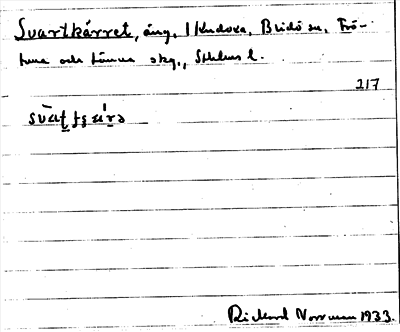 Svartkärret, äng, 1 Kudoxa, Bridö sn, Frö-
tuna och Länna skg., Sthlms l.
217
Rickard Norrman 1933.